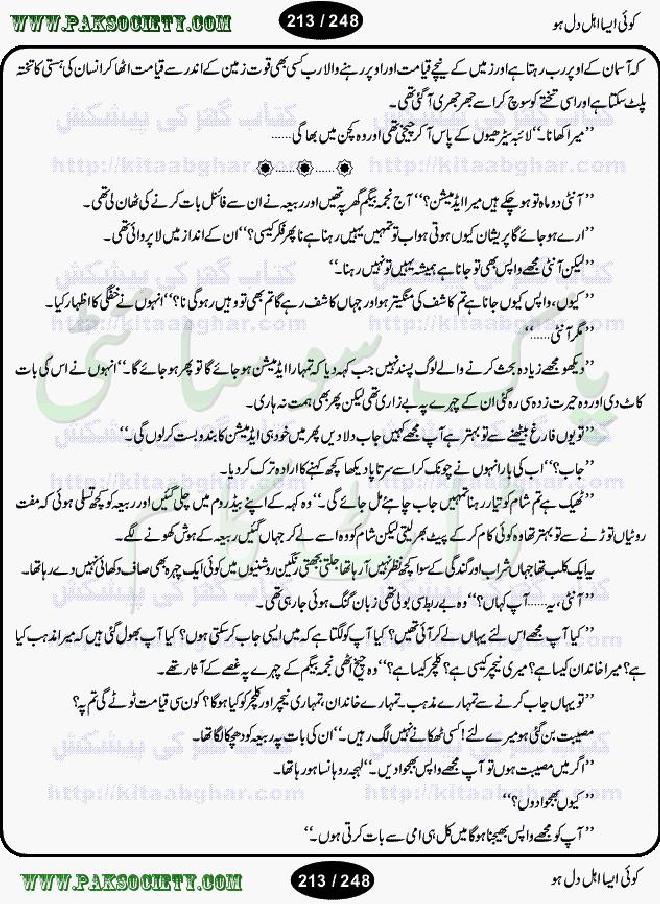 WWW.PAKSOCIETY.COM 213 / 248 کوئی ایسا اہل دل ہو
کہ آسمان کے اوپر رب رہتا ہے اور زمیں کے نیچے قیامت اور اوپر رہنے والا رب کسی بھی قوت زمین کے اندر سے قیامت اٹھا کر انسان کی ہستی کا تختہ
پلٹ سکتا ہے اور اسی تختے کو سوچ کر اسے جھرجھری آ گئی تھی۔
کتاب گھر کی پیشکش کتاب گھر کی پیشکش
’’میرا کھانا۔‘‘ لائبہ سیڑھیوں کے پاس آ کر چیخی تھی اور وہ کچن میں بھاگی......
http://kitaabghar.com http://kitaabghar.com
’’آنٹی دو ماہ تو ہو چکے ہیں میرا ایڈمیشن؟‘‘ آج نجمہ بیگم گھر پہ تھیں اور ربیعہ نے ان سے فائنل بات کرنے کی ٹھان لی تھی۔
’’ارے ہو جائے گا پریشان کیوں ہوتی ہو اب تو تمہیں یہیں رہنا ہے نا پھر فکر کیسی؟‘‘ ان کے انداز میں لا پروائی تھی۔
کتاب گھر کی پیشکش کتاب گھر کی پیشکش
’’لیکن آنٹی مجھے واپس بھی تو جانا ہے ہمیشہ یہیں تو نہیں رہنا۔‘‘
’’کیوں، واپس کیوں جانا ہے تم کاشف کی منگیتر ہو اور جہاں کاشف رہے گا تم بھی تو وہیں رہو گی نا؟‘‘ انہوں نے خفگی کا اظہار کیا۔
http://kitaabghar.com http://kitaabghar.com
’’مگر آنٹی......‘‘
پاک سوسائٹی
’’دیکھو مجھے زیادہ بحث کرنے والے لوگ پسند نہیں جب کہہ دیا کہ تمہارا ایڈمیشن ہو جائے گا تو پھر ہو جائے گا۔‘‘ انہوں نے اس کی بات
کاٹ دی اور وہ حیرت زدہ سی رہ گئی ان کے چہرے پہ بے زاری تھی لیکن پھر بھی ہمت نہ ہاری۔
’’تو یوں فارغ بیٹھنے سے تو بہتر ہے آپ مجھے کہیں جاب دلا دیں پھر میں خود ہی ایڈمیشن کا بندوبست کر لوں گی۔‘‘
’’جاب؟‘‘ اب کی بار انہوں نے چونک کر اسے سرتاپا دیکھا کچھ کہنے کا ارادہ ترک کر دیا۔
’’ٹھیک ہے تم شام کو تیار رہنا تمہیں جاب چاہئے مل جائے گی۔‘‘ وہ کہہ کے اپنے بیڈ روم میں چلی گئیں اور ربیعہ کو کچھ تسلی ہوئی کہ مفت
روٹیاں توڑنے سے تو بہتر تھا وہ کوئی کام کر کے پیٹ بھر لیتی لیکن شام کو وہ اسے لے کر جہاں گئیں ربیعہ کے ہوش کھونے لگے۔
ڈاٹ کام
یہ ایک کلب تھا جہاں شراب اور گندگی کے سوا کچھ نظر نہیں آ رہا تھا جلتی بجھتی رنگین روشنیوں میں کوئی ایک چہرہ بھی صاف دکھائی نہیں دے رہا تھا۔
کتاب گھر کی پیشکش کتاب گھر کی پیشکش
’’آنٹی، یہ...... آپ کہاں؟‘‘ وہ بے ربط سی بولی تھی زبان گنگ ہوئی جا رہی تھی۔
http://kitaabghar.com http://kitaabghar.com
’’کیا آپ مجھے اس لئے یہاں لے کر آئی تھیں؟ کیا آپ کو لگتا ہے کہ میں ایسی جاب کر سکتی ہوں؟ کیا آپ بھول گئی ہیں کہ میرا مذہب کیا
ہے؟ میرا خاندان کیسا ہے؟ میری نیچر کیسی ہے؟ کلچر کیسا ہے؟‘‘ وہ چیخ اٹھی نجمہ بیگم کے چہرے پہ غصے کے آثار تھے۔
’’تو یہاں جاب کرنے سے تمہارے مذہب۔ تمہارے خاندان، تمہاری نیچر اور کلچر کو کیا ہو گا؟ کون سی قیامت ٹوٹے گی تم پہ؟
مصیبت بن گئی ہو میرے لئے! کسی ٹھکانے نہیں لگ رہیں۔‘‘ ان کی بات پہ ربیعہ کو دھچکا لگا تھا۔
کتاب گھر کی پیشکش کتاب گھر کی پیشکش
’’اگر میں مصیبت ہوں تو آپ مجھے واپس بھجوا دیں۔‘‘ لہجہ روہانسا ہو رہا تھا۔
http://kitaabghar.com http://kitaabghar.com
’’کیوں بھجوا دوں؟‘‘
’’آپ کو مجھے واپس بھیجنا ہو گا میں کل ہی امی سے بات کرتی ہوں۔‘‘
WWW.PAKSOCIETY.COM 213 / 248 کوئی ایسا اہل دل ہو